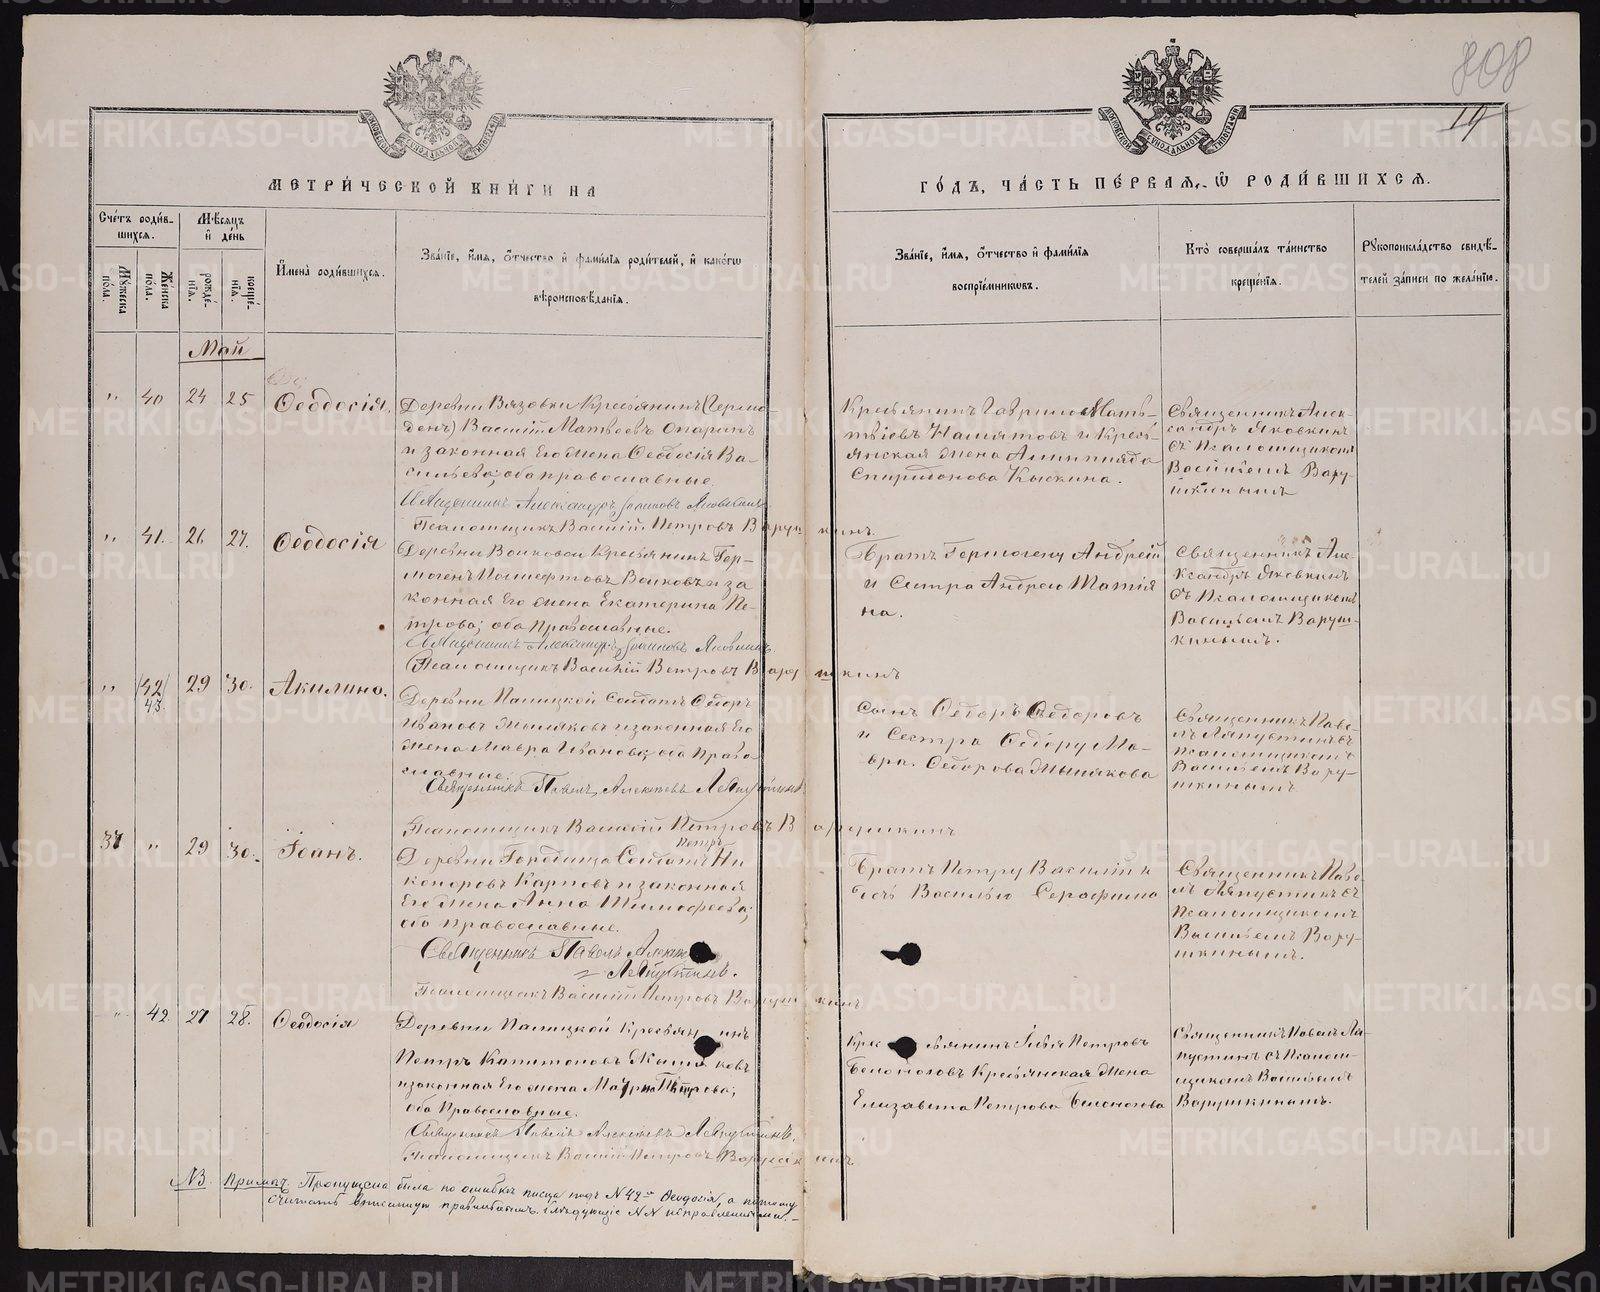 808
19
МЕТРИ́ЧЕСКОЙ КНИ́ГИ НА
ГО́ДЪ, ЧА́СТЬ ПЕ́РВАЯ, Ѽ РОДИ́ВШИХСЯ.
Сче́тъ роди́в-
шихся.
Мѣ́сяцъ
и҆ де́нь
Му́жеска по́ла.
Же́нска по́ла.
рожде́-нія.
креще́-нія.
И҆мена̀ роди́вшихся.
Зва́ніе, и҆́мя, о҆́тчество и҆ фами́лія роди́телей, и҆ како́гѡ
вѣроисповѣ́данія.
Зва́ніе, и҆́мя, о҆́тчество и҆ фами́лія
воспріе́мниковъ.
Кто̀ соверша́лъ та́инство
креще́нія.
Рукоприкла́дство свидѣ́-
телей за́писи по жела́нію.
Май
" 40 24 25 Ѳеодосія.
Деревни Вязовки Крестьянинъ
Василій Матвѣевъ Опаринъ
и законная Его жена Ѳеодосія Ва-
сильева; оба православные.
Священникъ Александръ Яковкинъ
Псаломщикъ Василій Петровъ Варушкинъ
Крестьянинъ Гаврило Мать-
вѣевъ и Кресть-
янская жена
Спиридонова Кыскина.
Священникъ Алек-
сандръ Яковкинъ
съ Псаломщикомъ
Василіемъ Вару-
шкинымъ
" 41. 26 27. Ѳеодосія
Деревни Волковой Крестьянинъ Гер-
могенъ Волковъ и за
конная Его жена Екатерина Пе-
трова; оба Православные.
Священникъ Александръ Яковкинъ
Псаломщикъ Василий Петровъ Варушкинъ
Братъ Гермогену Андрей
и Сестра Андрею Татiя
на.
Священникъ Але-
ксандръ Яковкинъ
съ Псаломщикомъ
Василіемъ Варуш-
кинымъ.
" 42 43. 29 30. Акилина.
Деревни Палицкой Солдатъ Ѳедоръ
Ивановъ и законная Его
жена Мавра Иванова; оба Право-
славные.
Священникъ Павелъ Алексѣевъ Ляпустинъ
Псаломщикъ Василій Петровъ Варушкинъ
Сынъ Ѳедоръ Ѳедоровъ
и Сестра Ѳедору Ма-
вра Ѳедорова
Священникъ Паве-
лъ Ляпустинъ съ
Псаломщикомъ
Василіемъ Вару-
шкинымъ
31 " 29 30. Іоанъ.
Петръ
Деревни Городища Солдатъ Ни
коноровъ Карповъ и законная
Его жена Анна Тимофеева;
оба православные.
Священникъ Павелъ Алексѣевъ
Ляпустинъ.
Псаломщикъ Василій Петровъ Варушкинъ
Братъ Петру Василій и
дочь Василью Серафима
Священникъ Паве-
лъ Ляпустинъ съ
Псаломщикомъ
Василіемъ Вару-
шкинымъ.
" 42. 27 28. Ѳеодосія
Деревни Палицкой Крестьянинъ
Петръ Капитоновъ
и законная Его жена Петрова;
оба Православные.
Священникъ Павелъ Алексѣевъ Ляпустинъ.
Псаломщикъ Василій Петровъ Варушкинъ
Крестьянинъ Илья Петровъ
Белоносовъ Крестьянская жена
Елизавета Петрова Белоносова
Священникъ Павелъ Ля-
пустинъ съ Псалом-
щикомъ Василіемъ
Варушкинымъ.
NB. Примѣч. Пропущена была по ошибкѣ писца подъ N 42м Ѳеодосія, а потому
считать вписанную правильною. Слѣдующіе NN исправленными. –
METRIKI.GASO-URAL.RU